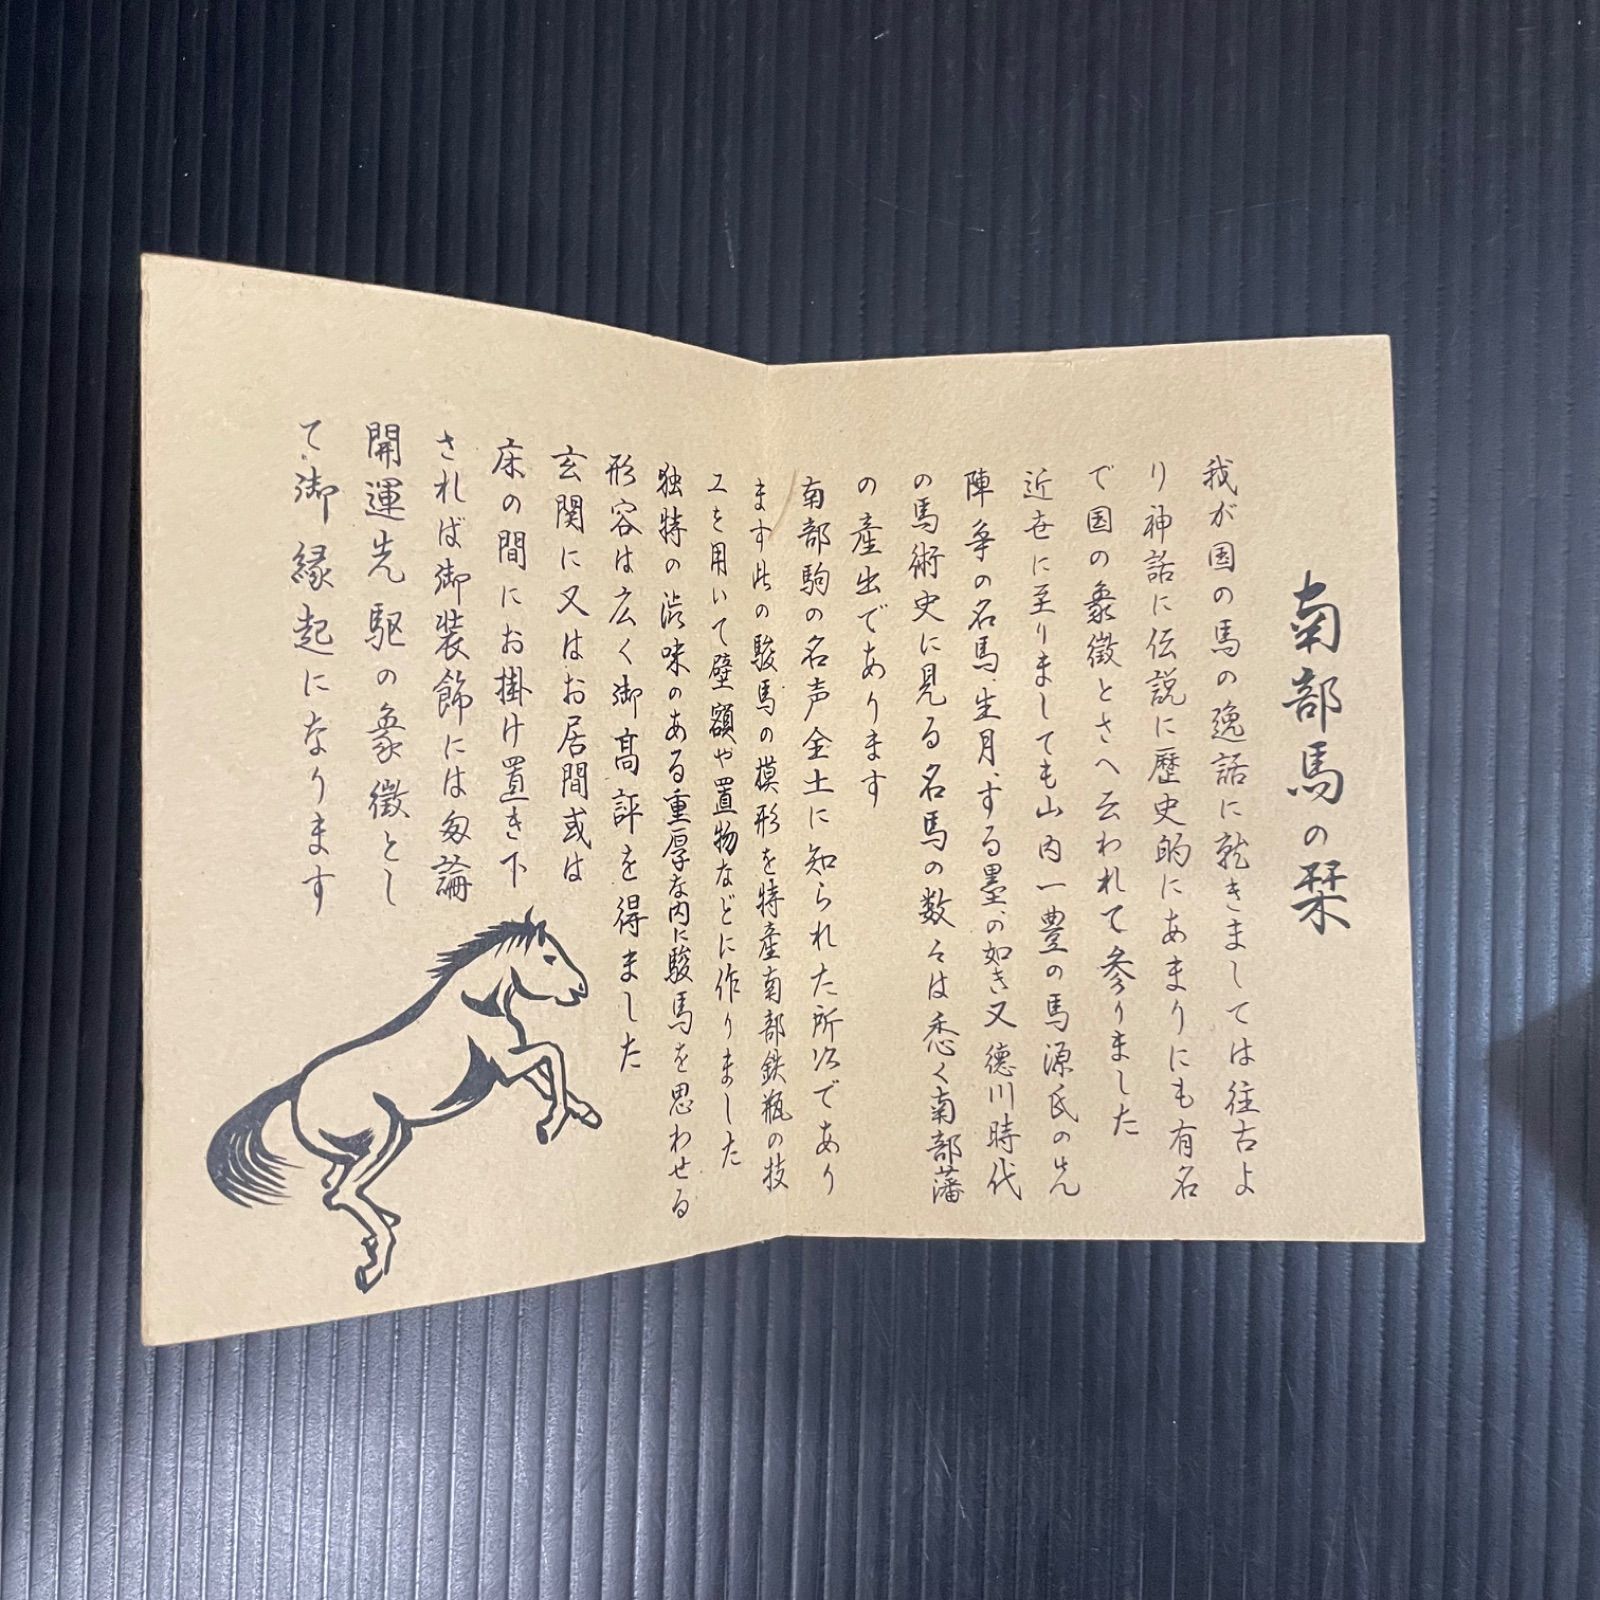 南部馬の栞
我が国の馬の逸話に就きましては往古よ
り神話に伝説に歴史的にあまりにも有名
で国の象徴とさへ云われて参りました
近世に至りましても山内一豊の馬源氏の先
陣争の名馬、生月、する墨、の如き又徳川時代
の馬術史に見る名馬の数々は悉く南部藩
の産出であります
南部駒の名声全土に知られた所以であり
ます此の駿馬の模形を特産南部鉄瓶の技
工を用いて壁額や置物などに作りました
独特の渋味のある重厚な内に駿馬を思わせる
形容は広く御高評を得ました
玄関に又はお居間或は
床の間にお掛け置き下
されば御装飾には勿論
開運先駆の象徴とし
て御縁起になります